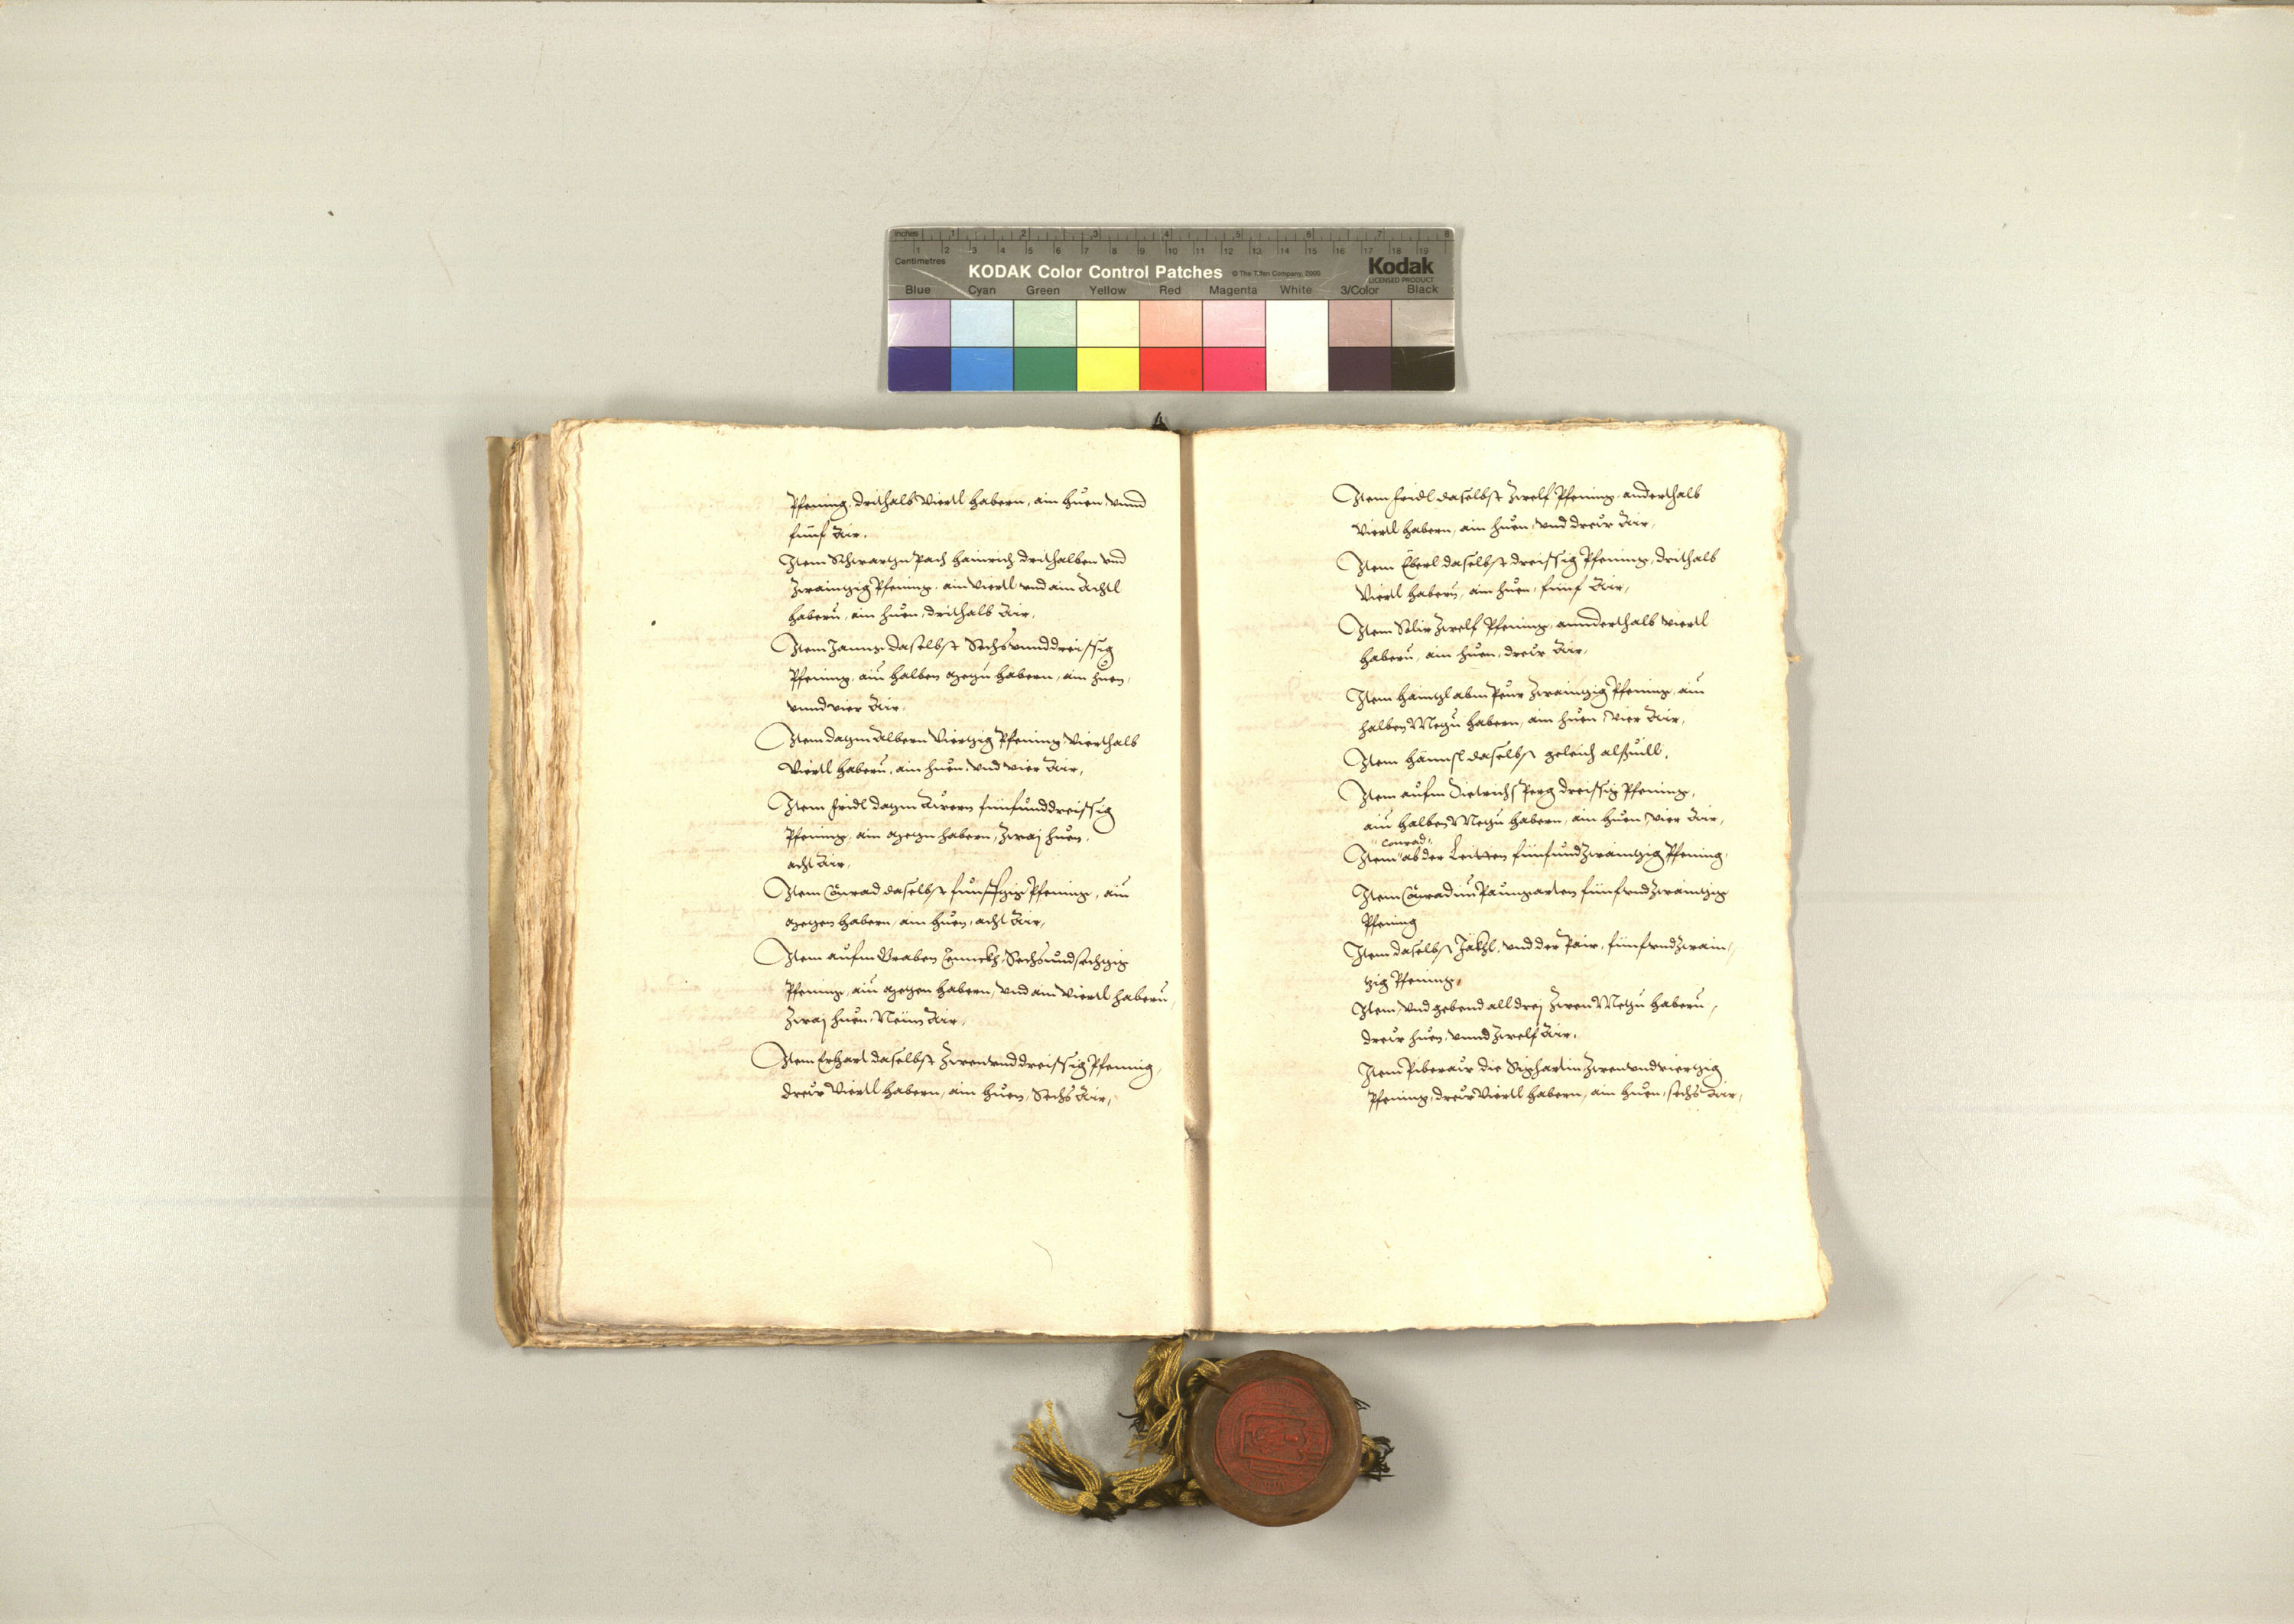 Inches 1 2 3 4 5 6 7 8
1 2 3 4 5 6 7 8 9 10 11 12 13 14 15 16 17 18 19
Centimetres
KODAK Color Control Patches © The Tiffen Company, 2000 Kodak
LICENSED PRODUCT
Blue Cyan Green Yellow Red Magenta White 3/Color Black
Pfening, drithalb Viertl habern, ain huen, vnnd
fünf Air.
Item Schwartzn Pach Hainrich drithalben vnd
zwaintzig Pfening, ain viertl vnd ain Achtl
habern, ain huen, drithalb Air.
Item daselbst Sechsvnnddreissig
Pfening, ain halben metzn habern, ain huen,
vnnd vier Air.
Item datzn Albern Viertzig Pfening Vierthalb
Viertl habern, ain huen, vnd vier Air,
Item fridl datzn fünfunddreissig
Pfening, ain metzn habern, zwaj huen,
acht Air.
Item Conrad daselbst funfftzig Pfening, ain
metzen habern, ain huen, acht Air,
Item aufm Graben Sechsundsechtzig
Pfening, ain metzen habern, vnd ain Viertl habern,
zwaj huen, Neün Air,
Item Erhart daselbst zwenvnddreissig Pfening,
dreur Viertl habern, ain huen, Sechs Air,
Item fridl daselbst zwelf Pfening, anderthalb
Viertl habern, ain huen, vnd dreur Air,
Item Eberl daselbst dreissig Pfening, drithalb
Viertl habern, ain huen, fünf Air,
Item zwelf Pfening, annderthalb viertl
habern, ain huen, dreur Air,
Item Haintzl abm zwaintzig Pfening, ain
halben Metzn habern, ain huen, vier Air,
Item Hännsl daselbs geleich alßuill,
Item aufm Dietrichs Perg dreissig Pfening,
ain halben Metzn habern, ain huen, vier Air,
Conrad
Item ab der Leitten fünfundzwaintzig Pfening,
Item Conrad im Paumgarten fünfvndzwaintzig
Pfening
Item daselbs Jäkhl, vnd der Pair, fünfvndzwain,
tzig Pfening,
Item, vnd gebend all drej zwen Metzn habern,
dreur huen, vnnd zwelf Air,
Item Piberair die zwenvndviertzig
Pfening, dreur Viertl habern, ain huen, sechs Air,